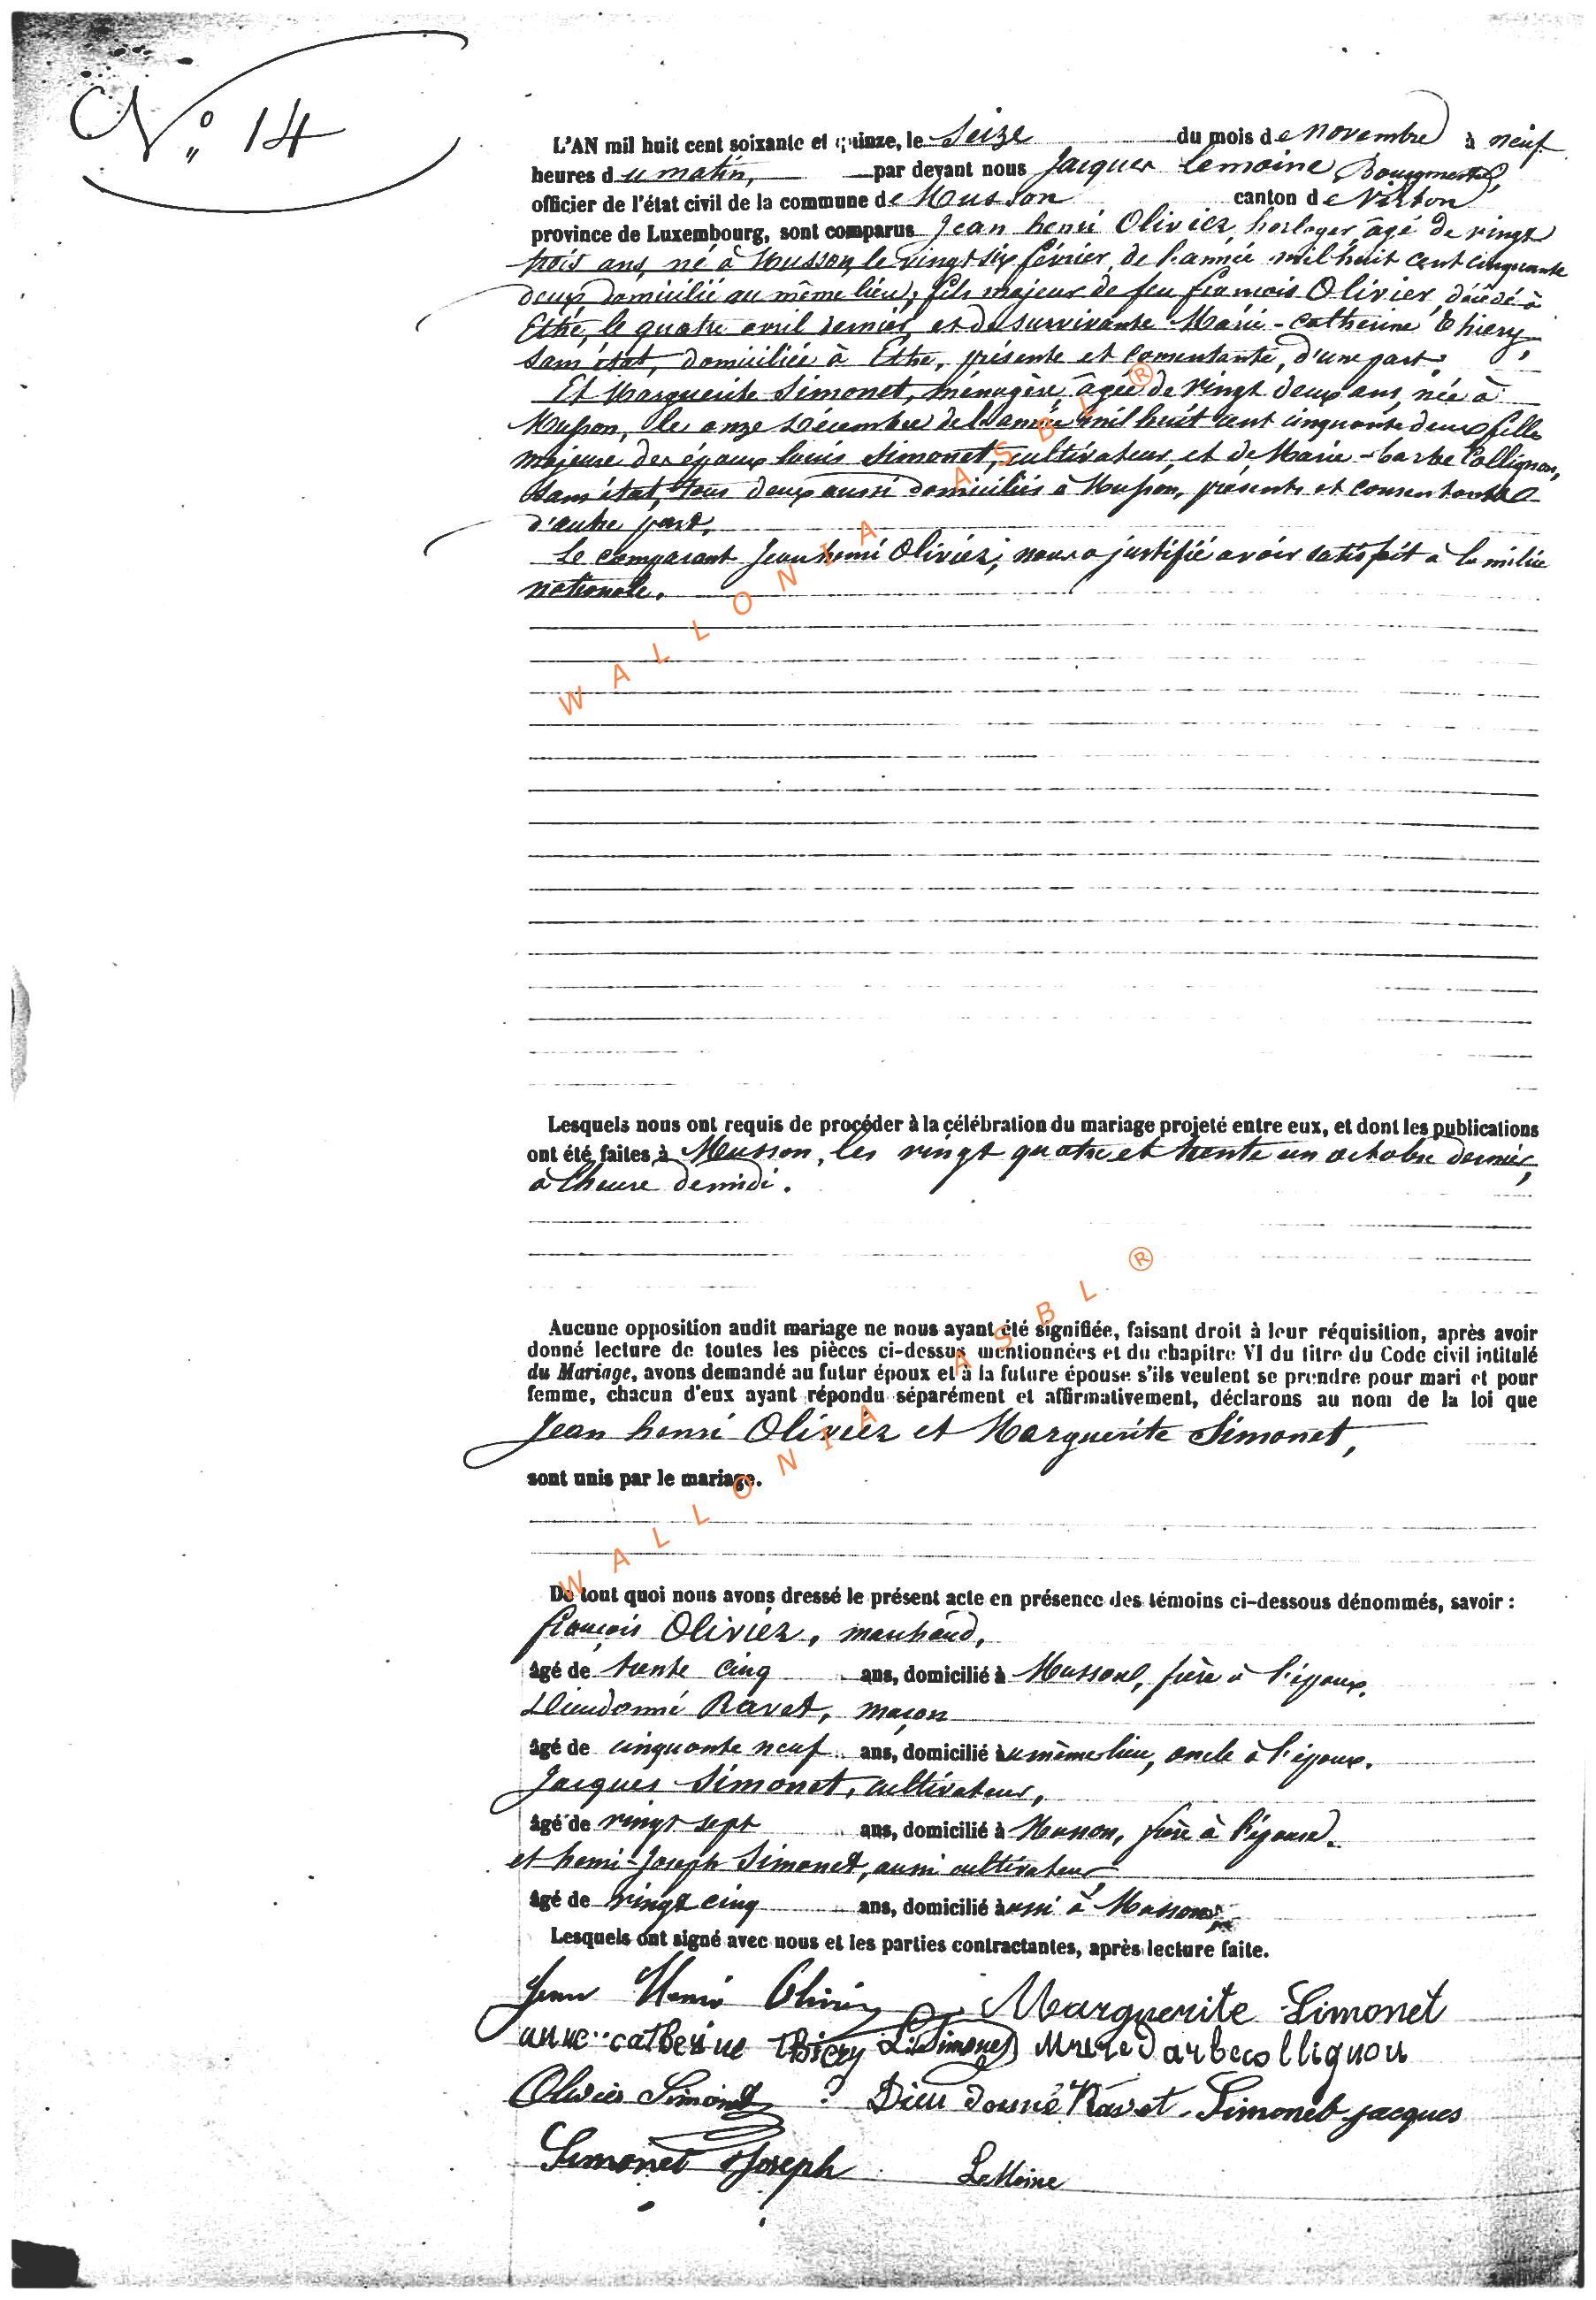 N° 14
L'AN mil huit cent soixante et quinze, le Seize du mois de novembre à neuf
heures du matin, par devant nous Jacques Lemoine Bourgmestre,
officier de l'état civil de la commune de Musson canton de Virton
province de Luxembourg, sont comparus Jean henri Olivier, horloger âgé de vingt
trois ans, né à Musson, le vingt six février, de l'année mil huit cent cinquante
deux, domicilié au même lieu, fils majeur de feu françois Olivier, décédé à
Ethe, le quatre avril dernier, et de survivante Marie-Catherine Thiery,
sans état, domiciliée à Ethe, présente et consentante, d'une part.
Et Marguerite Simonet, ménagère, âgée de vingt deux ans, née à
Musson, le onze Décembre de l'année mil huit cent cinquante deux, fille
majeure des époux Louis Simonet, cultivateur, et de Marie-barbe Collignon,
sans état, tous deux aussi domiciliés à Musson, présents et consentants
d'autre part.
Le comparant Jean henri Olivier, nous a justifié avoir satisfait à la milice
nationale.
Lesquels nous ont requis de procéder à la célébration du mariage projeté entre eux, et dont les publications
ont été faites à Musson, les vingt quatre et trente un octobre dernier,
à l'heure de midi.
Aucune opposition audit mariage ne nous ayant été signifiée, faisant droit à leur réquisition, après avoir
donné lecture de toutes les pièces ci-dessus mentionnées et du chapitre VI du titre du Code civil intitulé
du Mariage, avons demandé au futur époux et à la future épouse s'ils veulent se prendre pour mari et pour
femme, chacun d'eux ayant répondu séparément et affirmativement, déclarons au nom de la loi que
Jean henri Olivier et Marguerite Simonet,
sont unis par le mariage.
De tout quoi nous avons dressé le présent acte en présence des témoins ci-dessous dénommés, savoir :
françois Olivier, marchand,
âgé de trente cinq ans, domicilié à Musson, frère à l'époux.
Dieudonné Ravet, maçon
âgé de cinquante neuf ans, domicilié au même lieu, oncle à l'époux.
Jacques Simonet, cultivateur,
âgé de vingt sept ans, domicilié à Musson, frère à l'épouse.
et henri-Joseph Simonet, aussi cultivateur
âgé de vingt cinq ans, domicilié aussi à Musson
Lesquels ont signé avec nous et les parties contractantes, après lecture faite.
Jean Henri Olivier Marguerite Simonet
anne-catherine thiery L. Simonet Marie barbe collignon
Olivier Dieu donné Ravet Simonet jacques
Simonet Joseph LeMoine
WALLONIA ASBL ®
WALLONIA ASBL ®